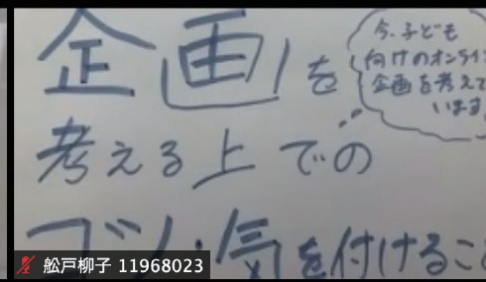 企画を
考える上での
コツ・気を付けるこ
今、子ども
向けのオンライ
企画を考えて
います
舩戸柳子 11968023